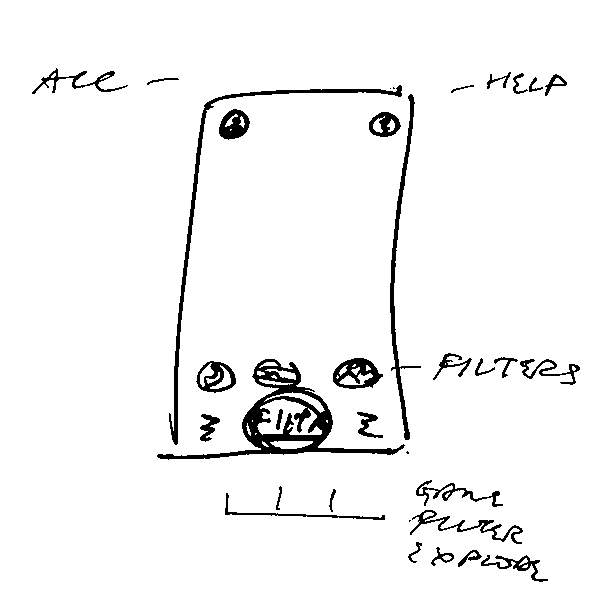 ACC
HELP
FILTERS
FILTR
GAME
FILTER
EXPLORE